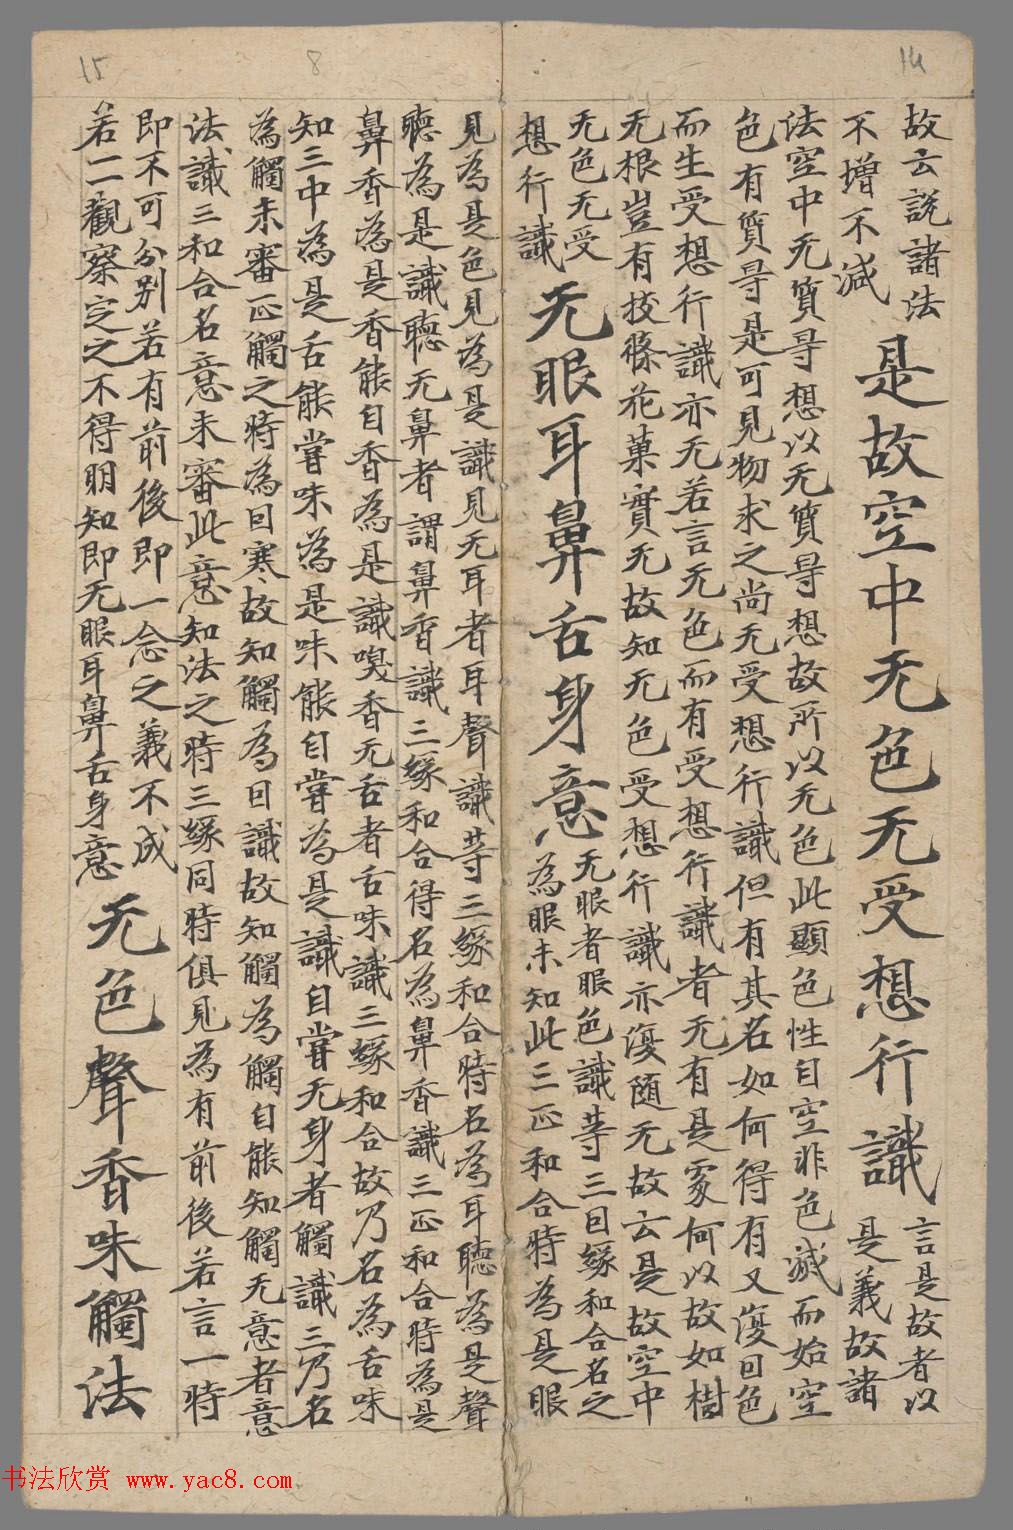 15
8
14
故云說諸法
不增不減
是故空中无色无受想行識
言是故者以
是義故諸
法空中无質㝵想以无質㝵想故所以无色此顯色性自空非色滅而始空
色有質㝵是可見物求之尚无受想行識但有其名如何得有又復因色
而生受想行識亦无若言无色而有受想行識者无有是處何以故如樹
无根豈有枝條花菓實无故知无色受想行識亦復随无故云是故空中
无色无受
想行識
无眼耳鼻舌身意
无眼者眼色識等三因緣和合名之
為眼未知此三正和合時為是眼
見為是色見為是識見无耳者耳聲識等三緣和合時名為耳聽為是聲
聽為是識聽无鼻者謂鼻香識三緣和合得名為鼻香識三正和合時為是
鼻香為是香能自香為是識嗅香无舌者舌味識三緣和合故乃名為舌味
知三中為是舌能嘗味為是味能自嘗為是識自嘗无身者觸識三乃名
為觸未審正觸之時為因寒故知觸為因識故知觸為觸自能知觸无意者意
法識三和合名意未審此意知法之時三緣同時俱見為有前後若言一時
即不可分別若有前後即一念之義不成
若一一觀察定之不得明知即无眼耳鼻舌身意
无色聲香味觸法
书法欣赏 www.yac8.com